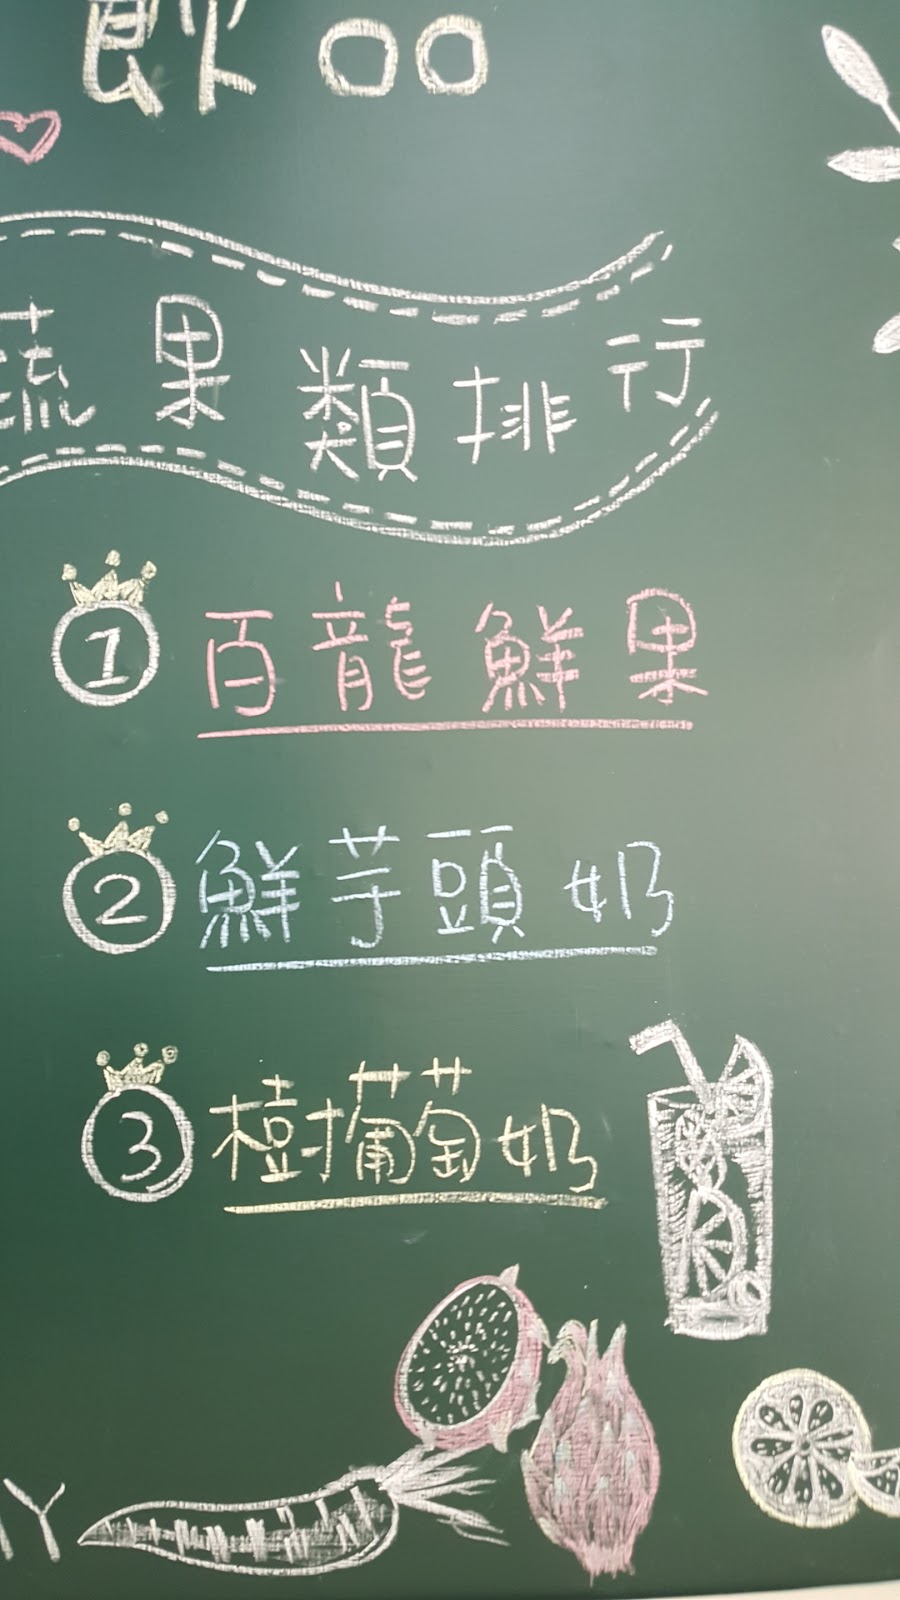 飲
蔬果類排行
1 百龍鮮果
2 鮮芋頭奶
3 樹葡萄奶
Y